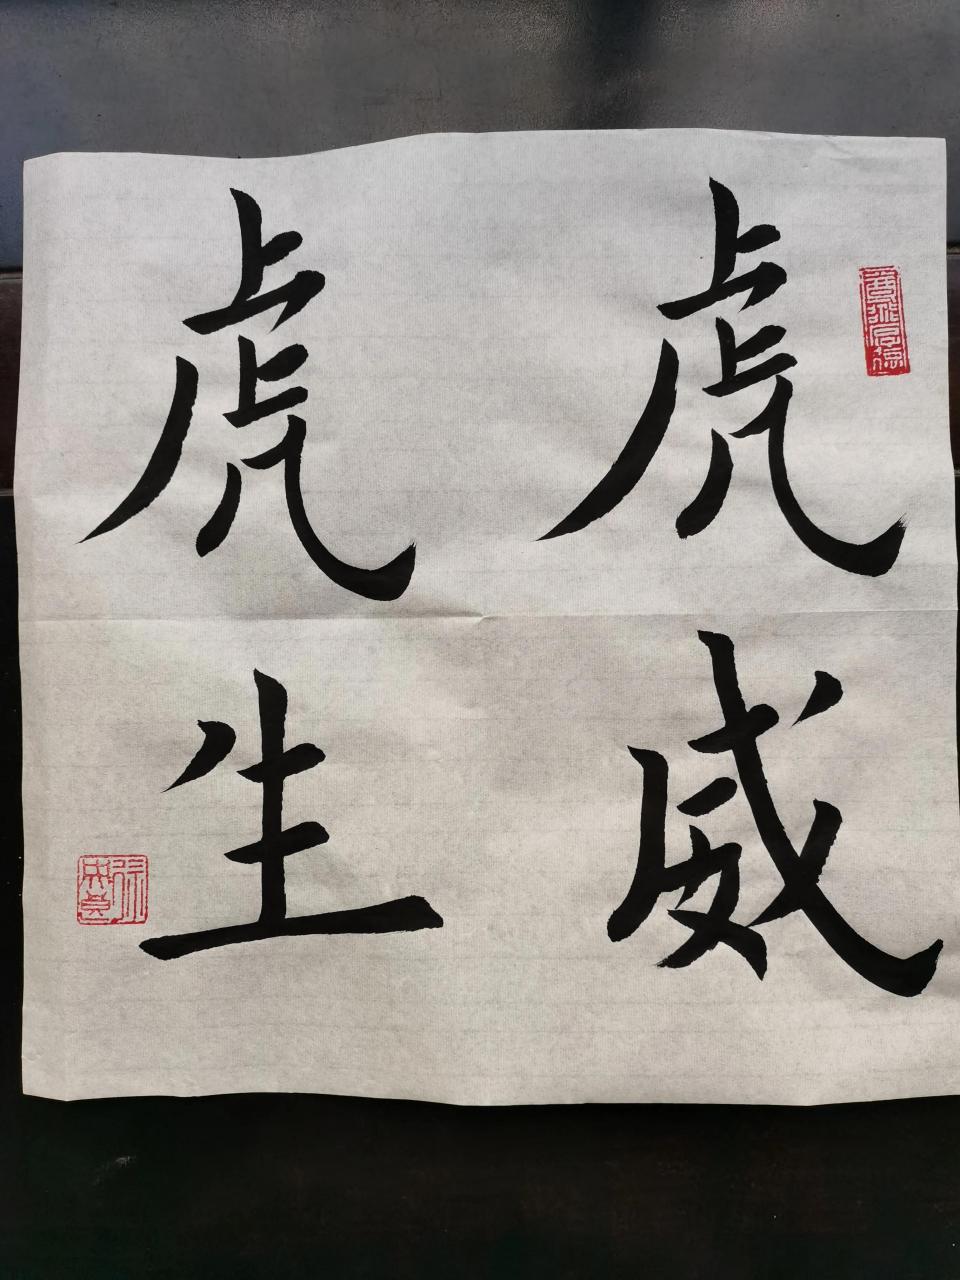 虎威
虎生